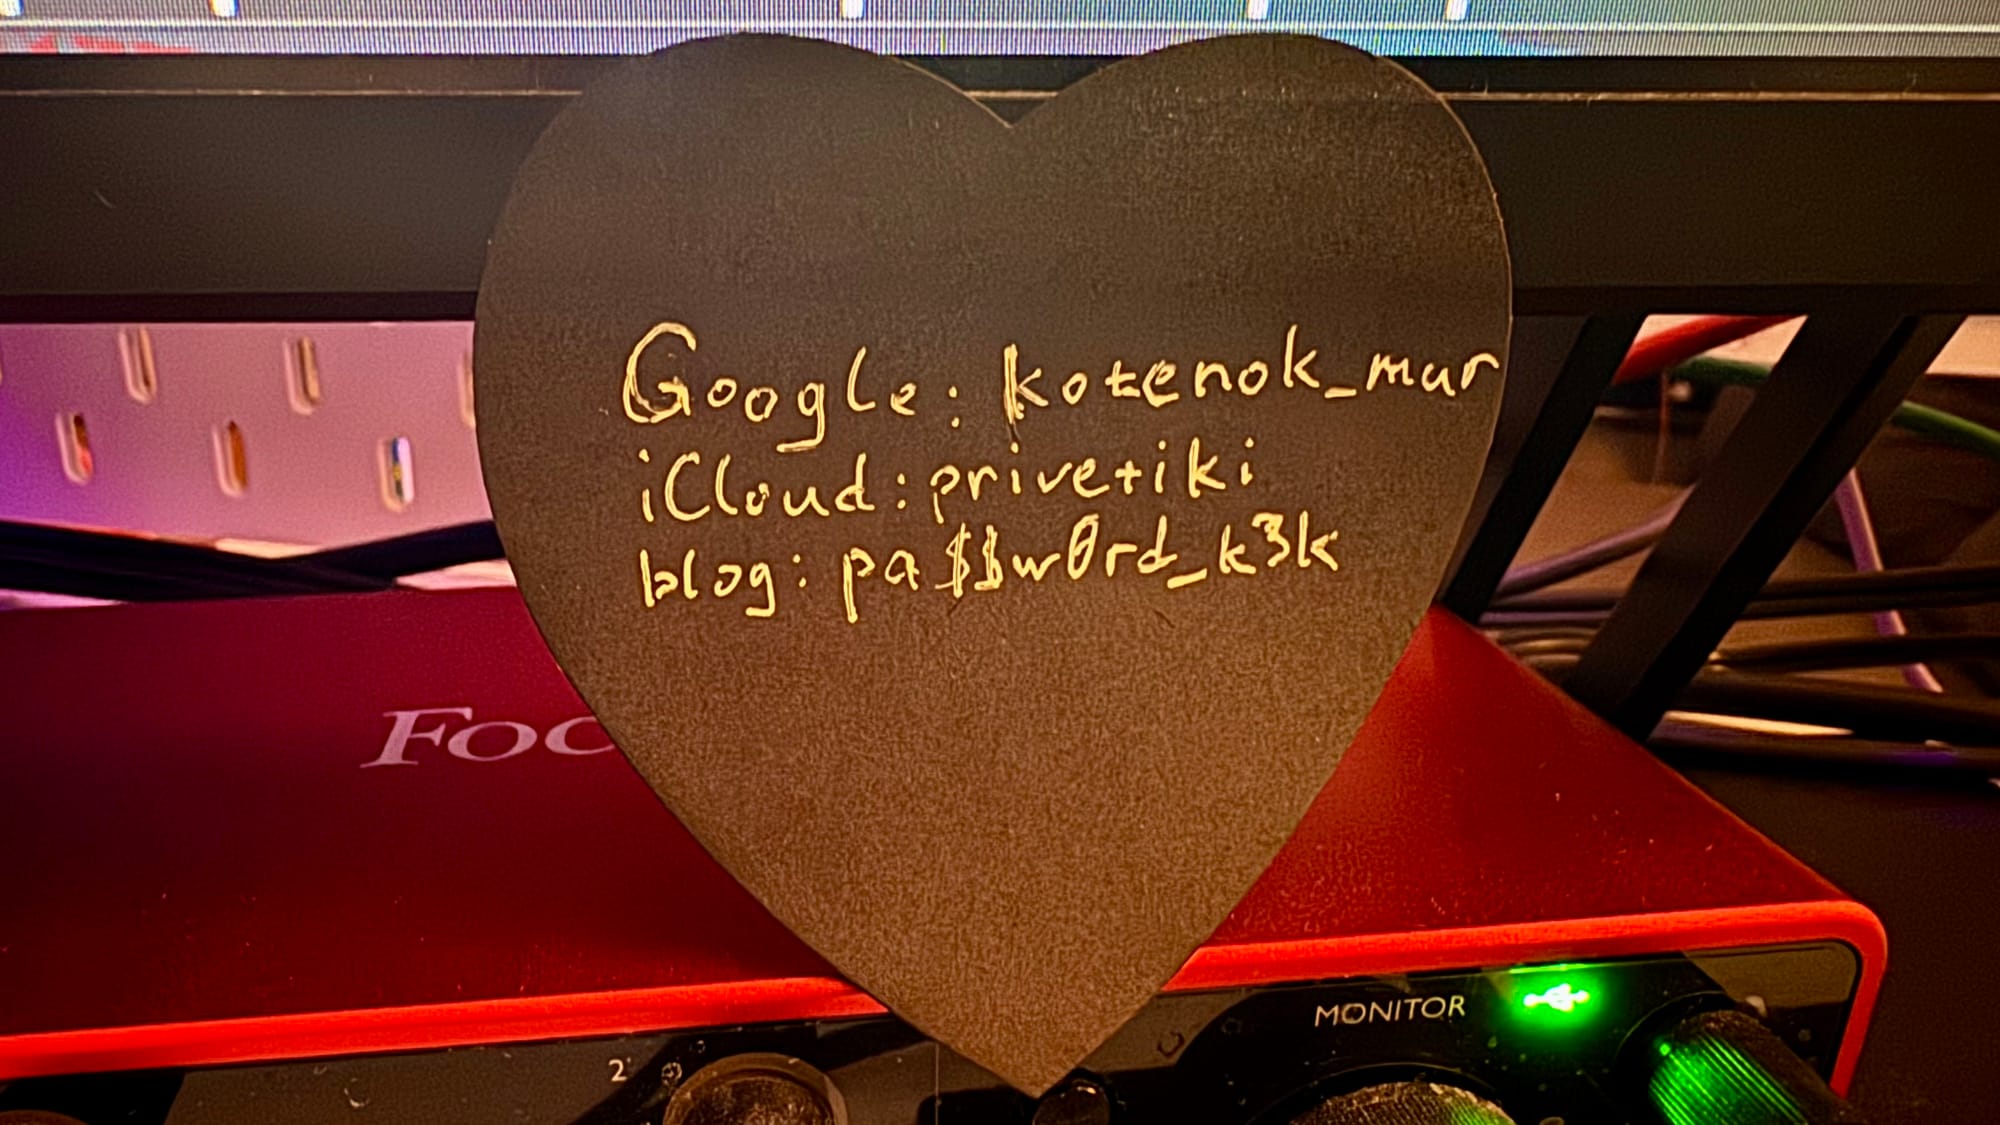 Google: kotenok_mur
iCloud: privetiki
blog: pa$$w0rd_k3k
Foc
MONITOR
2